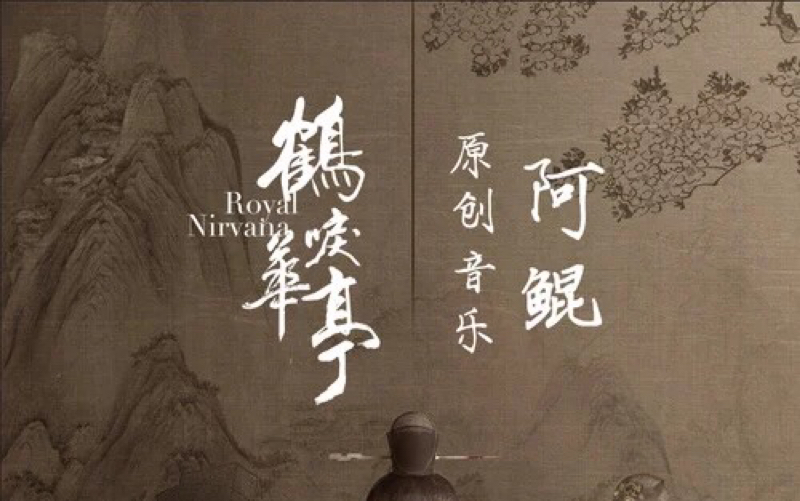 鶴唳華亭
Royal
Nirvana
原创音乐
阿鲲